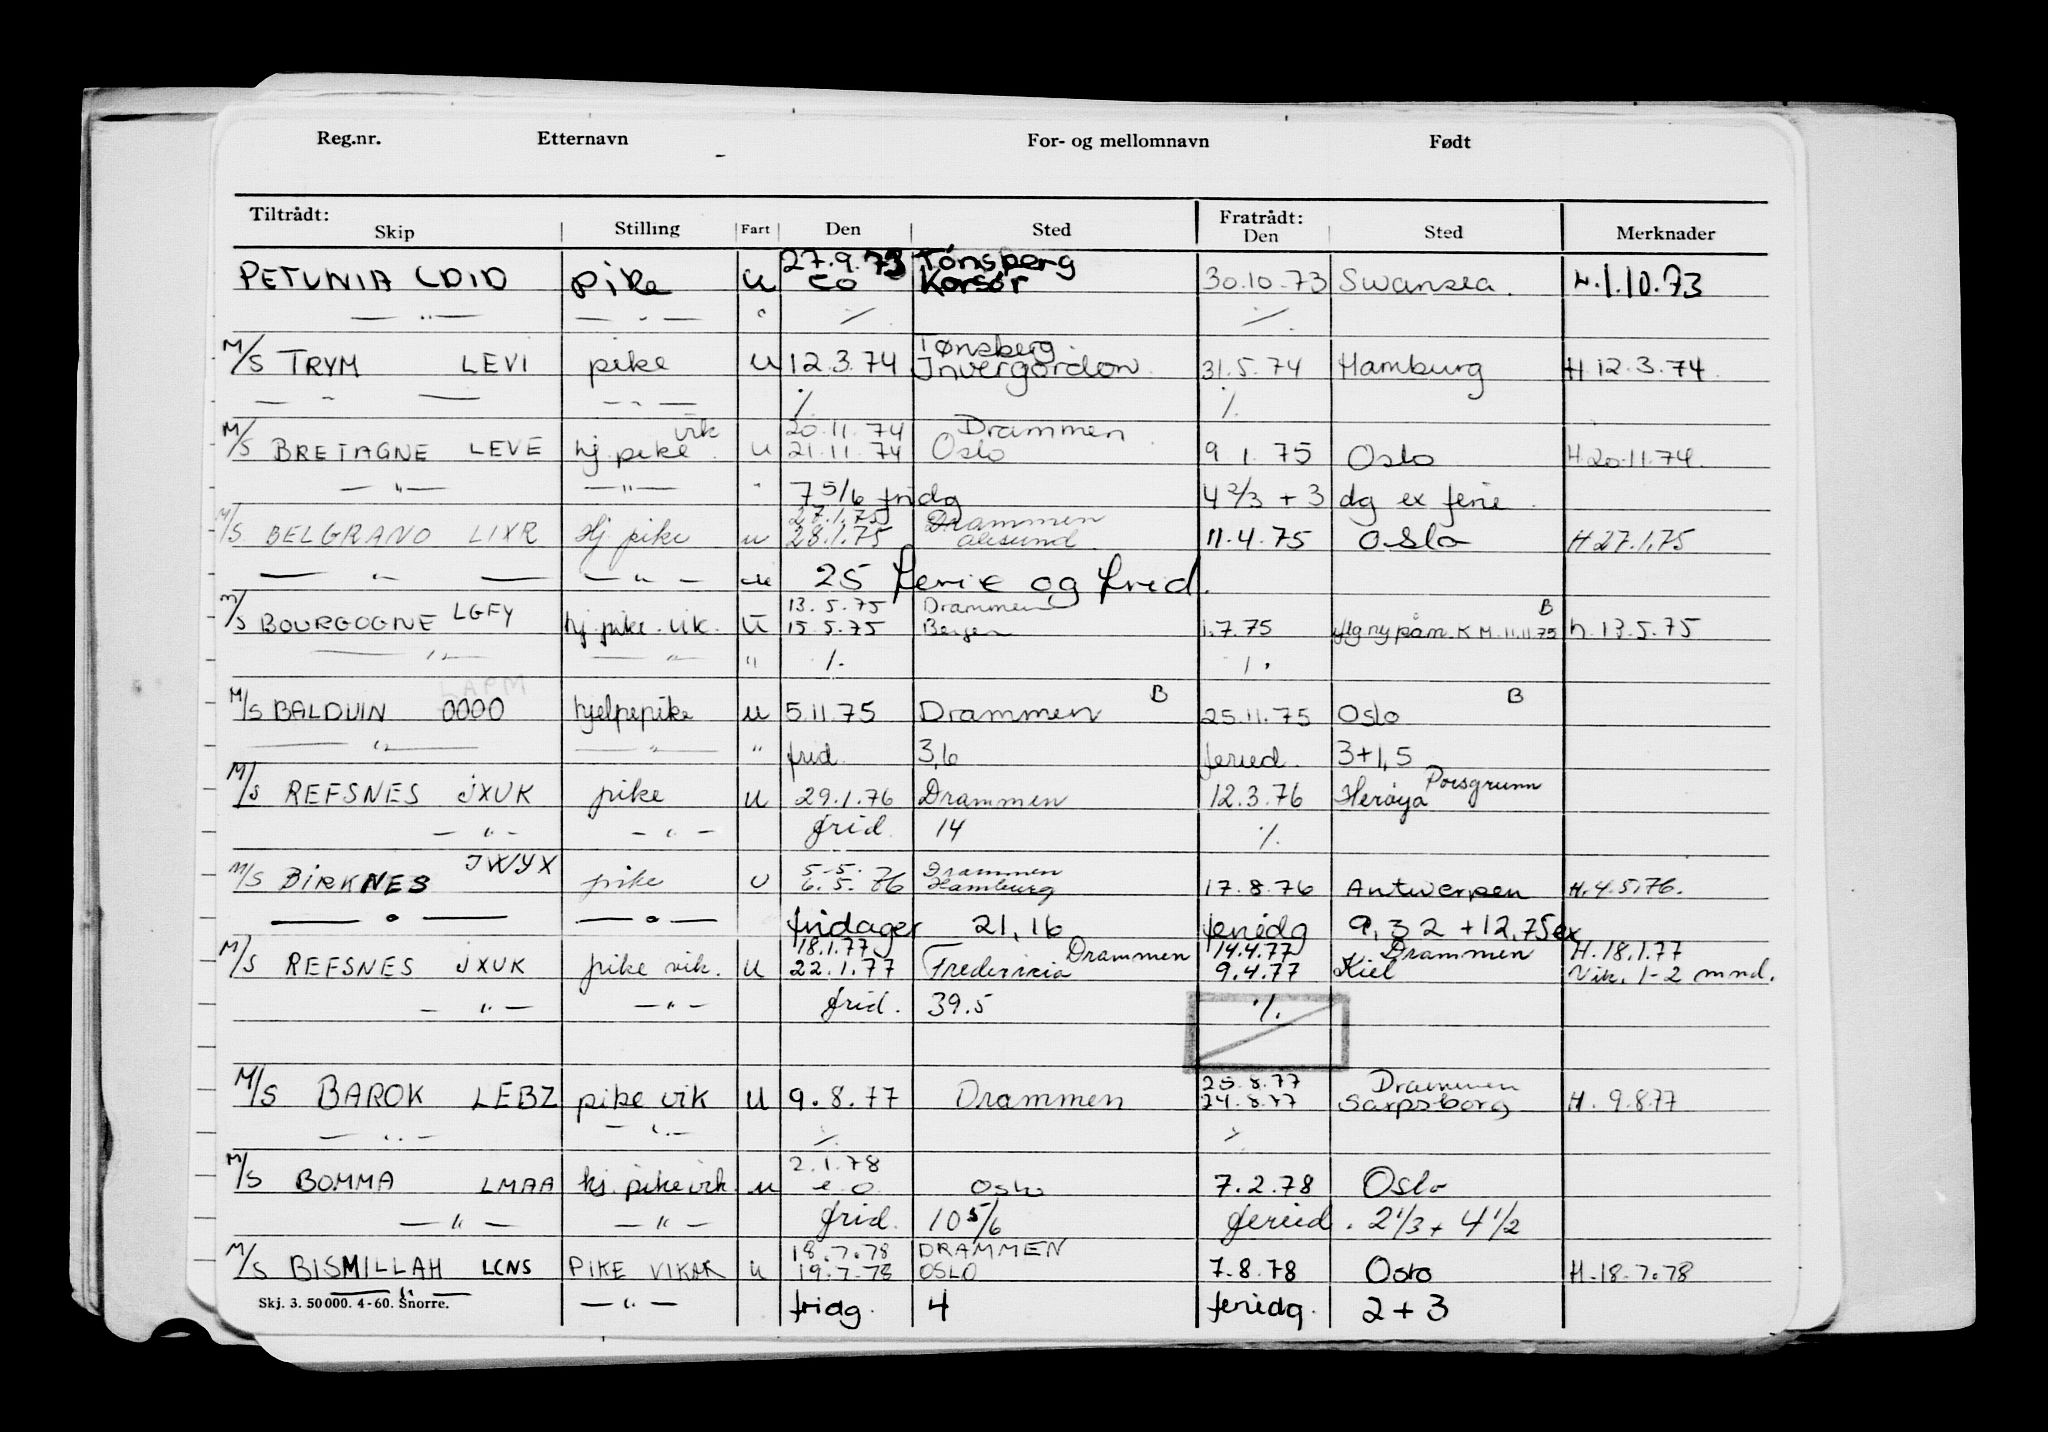 Reg.nr. Etternavn For- og mellomnavn Født
Tiltrådt: Fratrådt:
Skip Stilling Fart Den Sted Den Sted Merknader
27.9.73 Tønsberg
PETUNIA LDID pike u EO Korsør 30.10.73 Swansea. H.1.10.73
— " — — " — " ⁒ ⁒
Tønsberg
M/S TRYM LEVI pike u 12.3.74 Invergordon. 31.5.74 Hamburg H.12.3.74.
— " — — " — ⁒ ⁒
vik 20.11.74 Drammen
M/S BRETAGNE LEVE hj.pike. u 21.11.74 Oslo 9.1.75 Oslo H20.11.74.
— " — — " — " 7 5/6 fridg 4 2/3 + 3 dg ex ferie.
27.1.75 Drammen
M/S BELGRANO LIXR Hj. pike u 28.1.75 Ålesund 11.4.75 Oslo H27.1.75
— " — — " — u 25 ferie og frid.
13.5.75 Drammen B
M/S BOURGOGNE LGFY hj.pike.vik. U 15.5.75 Bergen 1.7.75 iflg ny påm. K M.11.11.75 h.13.5.75
— " — — " — " ⁒ ⁒
LAPM B B
M/S BALDUIN OOOO hjelpepike u 5.11.75 Drammen 25.11.75 Oslo
— " — — " — " frid. 3,6 feried. 3+1,5
M/S REFSNES JXUK pike u 29.1.76 Drammen 12.3.76 Herøya Porsgrunn
— " — — " — frid. 14 ⁒
5.5. Drammen
M/S BIRKNES JWYX pike u 6.5.76 Hamburg 17.8.76 Antwerpen H.4.5.76.
— " — — " — fridager 21,16 feriedg 9,32 + 12,75 ex
18.1.77 Drammen 14.4.77 Drammen H.18.1.77
M/S REFSNES JXUK pike vik. u 22.1.77 Fredericia 9.4.77 Kiel Vik. 1-2 mnd.
— " — — " — frid. 39.5 ⁒
25.8.77 Drammen
M/S BAROK LEBZ pike vik u 9.8.77 Drammen 24.8.77 Sarpsborg H. 9.8.77
— " — — " — ⁒ ⁒
2.1.78
M/S BOMMA LMAA hj. pike vik u e.o. Oslo 7.2.78 Oslo
— " — — " — frid. 10 5/6 feried. 2 1/3 + 4 1/2
18.7.78 DRAMMEN
M/S BISMILLAH LCNS PIKE VIKAR u 19.7.78 OSLO 7.8.78 Oslo H.18.7.78
Skj. 3. 50 000. 4-60. Snorre. — " — fridg. 4 feriedg. 2 + 3